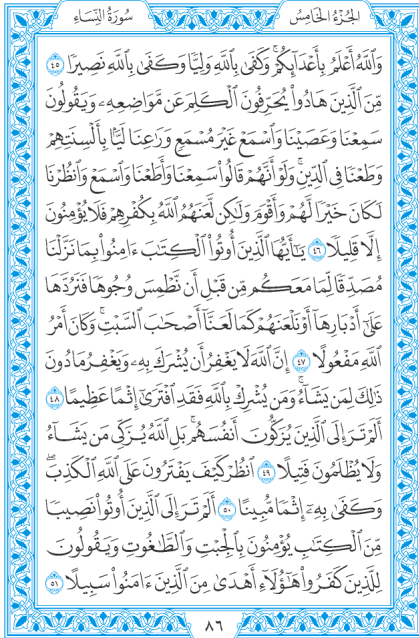 الجزء الخامس
سورة النساء
وَٱللَّهُ أَعْلَمُ بِأَعْدَآئِكُمْ ۚ وَكَفَىٰ بِٱللَّهِ وَلِيًّا وَكَفَىٰ بِٱللَّهِ نَصِيرًا ٤٥
مِّنَ ٱلَّذِينَ هَادُوا۟ يُحَرِّفُونَ ٱلْكَلِمَ عَن مَّوَاضِعِهِۦ وَيَقُولُونَ
سَمِعْنَا وَعَصَيْنَا وَٱسْمَعْ غَيْرَ مُسْمَعٍ وَرَٰعِنَا لَيًّۢا بِأَلْسِنَتِهِمْ
وَطَعْنًا فِى ٱلدِّينِ ۚ وَلَوْ أَنَّهُمْ قَالُوا۟ سَمِعْنَا وَأَطَعْنَا وَٱسْمَعْ وَٱنظُرْنَا
لَكَانَ خَيْرًا لَّهُمْ وَأَقْوَمَ وَلَٰكِن لَّعَنَهُمُ ٱللَّهُ بِكُفْرِهِمْ فَلَا يُؤْمِنُونَ
إِلَّا قَلِيلًا ٤٦ يَٰٓأَيُّهَا ٱلَّذِينَ أُوتُوا۟ ٱلْكِتَٰبَ ءَامِنُوا۟ بِمَا نَزَّلْنَا
مُصَدِّقًا لِّمَا مَعَكُم مِّن قَبْلِ أَن نَّطْمِسَ وُجُوهًا فَنَرُدَّهَا
عَلَىٰٓ أَدْبَارِهَآ أَوْ نَلْعَنَهُمْ كَمَا لَعَنَّآ أَصْحَٰبَ ٱلسَّبْتِ ۚ وَكَانَ أَمْرُ
ٱللَّهِ مَفْعُولًا ٤٧ إِنَّ ٱللَّهَ لَا يَغْفِرُ أَن يُشْرَكَ بِهِۦ وَيَغْفِرُ مَا دُونَ
ذَٰلِكَ لِمَن يَشَآءُ ۚ وَمَن يُشْرِكْ بِٱللَّهِ فَقَدِ ٱفْتَرَىٰٓ إِثْمًا عَظِيمًا ٤٨
أَلَمْ تَرَ إِلَى ٱلَّذِينَ يُزَكُّونَ أَنفُسَهُم ۚ بَلِ ٱللَّهُ يُزَكِّى مَن يَشَآءُ
وَلَا يُظْلَمُونَ فَتِيلًا ٤٩ ٱنظُرْ كَيْفَ يَفْتَرُونَ عَلَى ٱللَّهِ ٱلْكَذِبَ ۖ
وَكَفَىٰ بِهِۦٓ إِثْمًا مُّبِينًا ٥٠ أَلَمْ تَرَ إِلَى ٱلَّذِينَ أُوتُوا۟ نَصِيبًا
مِّنَ ٱلْكِتَٰبِ يُؤْمِنُونَ بِٱلْجِبْتِ وَٱلطَّٰغُوتِ وَيَقُولُونَ
لِلَّذِينَ كَفَرُوا۟ هَٰٓؤُلَآءِ أَهْدَىٰ مِنَ ٱلَّذِينَ ءَامَنُوا۟ سَبِيلًا ٥١
٨٦